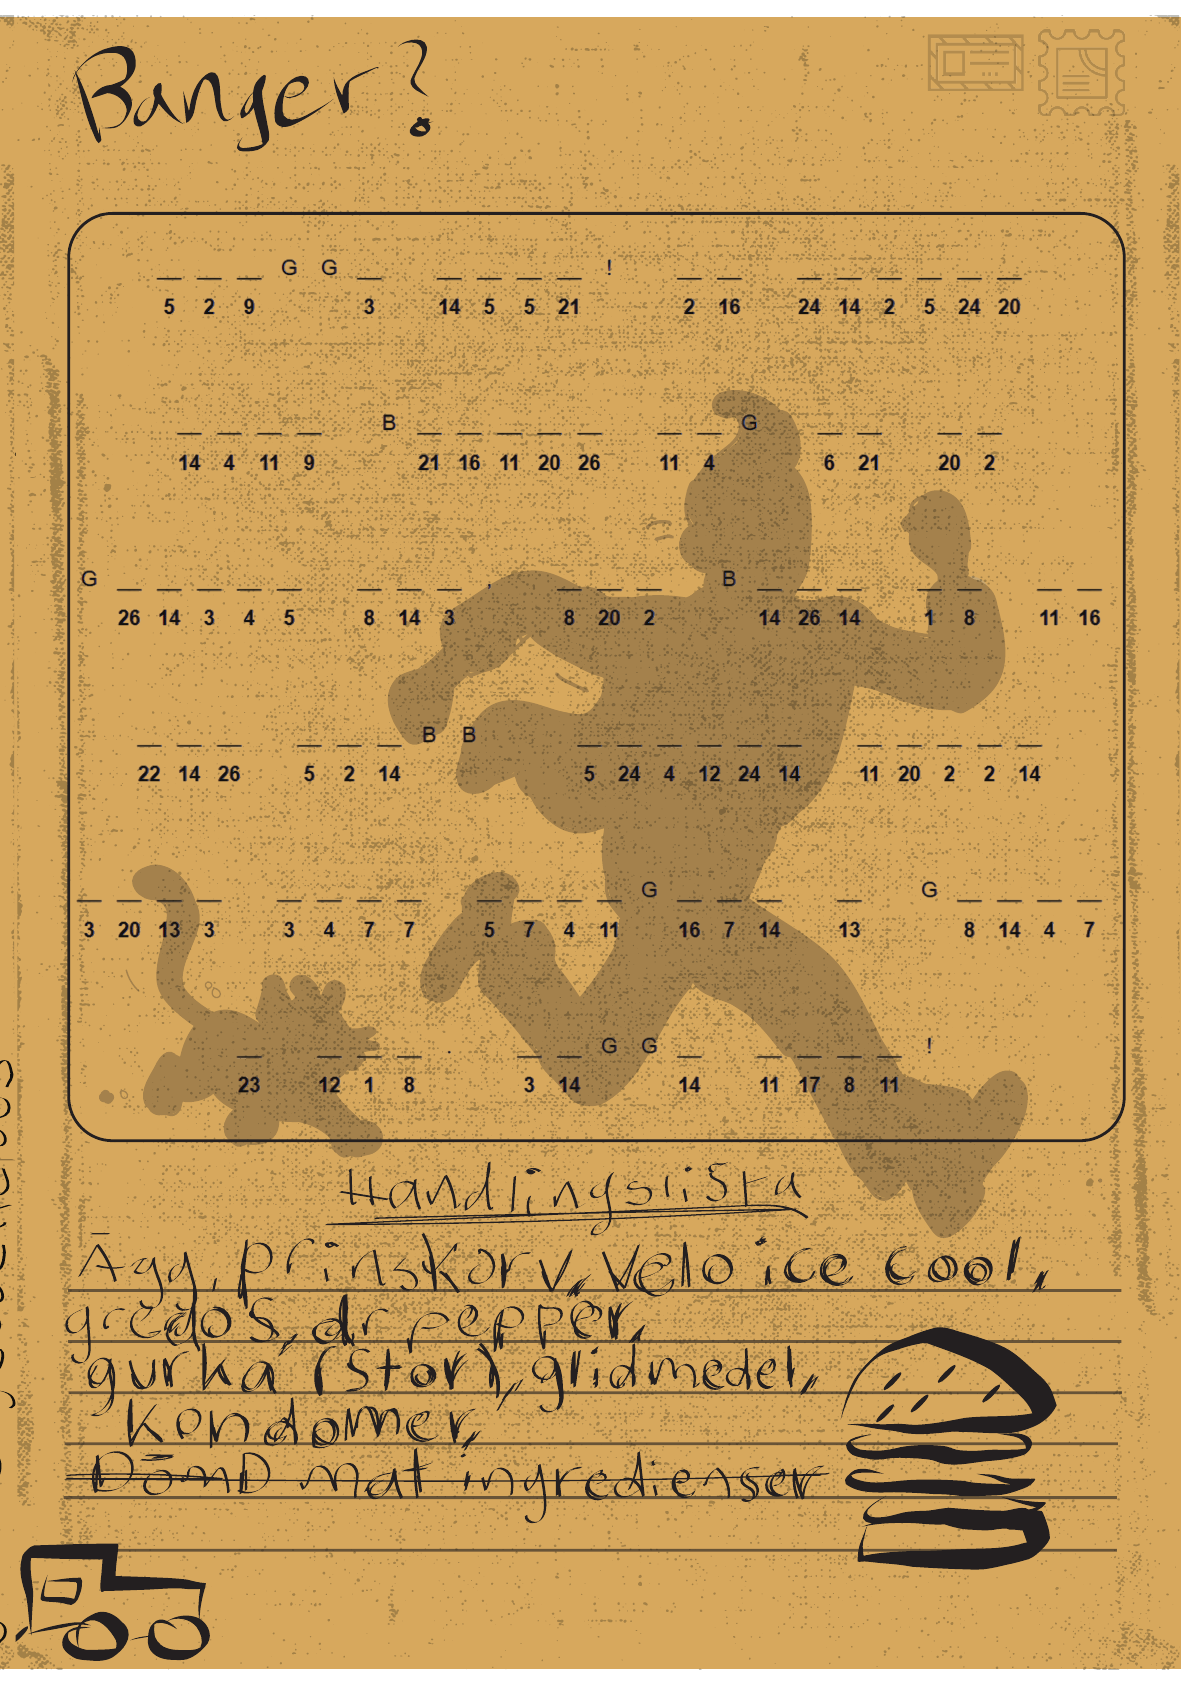 Banger?
_ _ _ G G _ _ _ _ _ ! _ _ _ _ _ _ _ _
5 2 9 3 14 5 5 21 2 16 24 14 2 5 24 20
_ _ _ _ B _ _ _ _ _ _ _ G _ _ _ _
14 4 11 9 21 16 11 20 26 11 4 6 21 20 2
G _ _ _ _ _ _ _ _ , _ _ _ B _ _ _ _ _ _ _
26 14 3 4 5 8 14 3 8 20 2 14 26 14 1 8 11 16
_ _ _ _ _ _ B B _ _ _ _ _ _ _ _ _ _ _
22 14 26 5 2 14 5 24 4 12 24 14 11 20 2 2 14
_ _ _ _ _ _ _ _ _ _ _ _ G _ _ _ _ G _ _ _ _
3 20 13 3 3 4 7 7 5 7 4 11 16 7 14 13 8 14 4 7
_ _ _ _ . _ _ G G _ _ _ _ _ !
23 12 1 8 3 14 14 11 17 8 11
Handlingslista
Ägg, prinskorv, Velo ice cool,
grädos, dr pepper,
gurka (stor), glidmedel,
kondomer,
DömD mat ingredienser